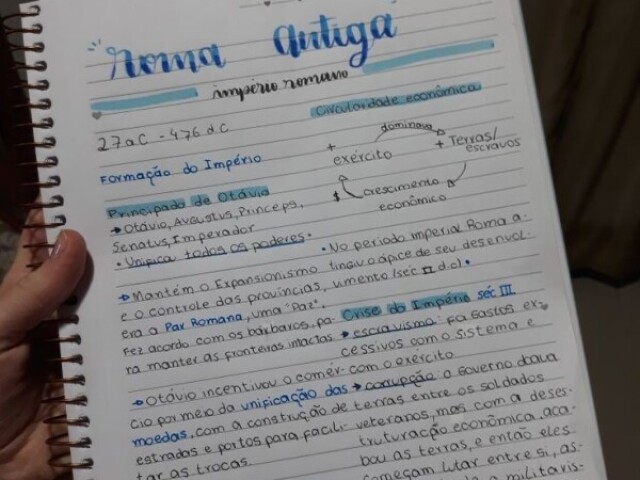 Roma Antiga
império romano
27 a C - 476 d C
Formação do Império
Principado de Otávio
→ Otávio, Augustus, Princeps,
Senatus, Imperador
• Unifica todos os poderes •
→ Mantém o Expansionismo
e o controle das províncias,
era a Pax Romana, uma "Paz".
Fez acordo com os bárbaros, pa-
ra manter as fronteiras intactas
→ Otávio incentivou o comér-
cio por meio da unificação das
moedas, com a construção de
estradas e portos para facili-
tar as trocas
Circularidade econômica
dominava
+ exército
+ Terras/
escravos
crescimento
econômico
$
• No período imperial Roma a-
tingiu o ápice de seu desenvol-
vimento (séc II d.c) •
Crise do Império séc III
→ escravismo: Fa Gastos ex-
cessivos com o sistema e
com o exército
→ corrupção: a Governo dava
terras entre os soldados
veteranos, mas com a deses-
truturação econômica, aca-
bou as terras, e então eles
começam lutar entre si, as-
a militaris-